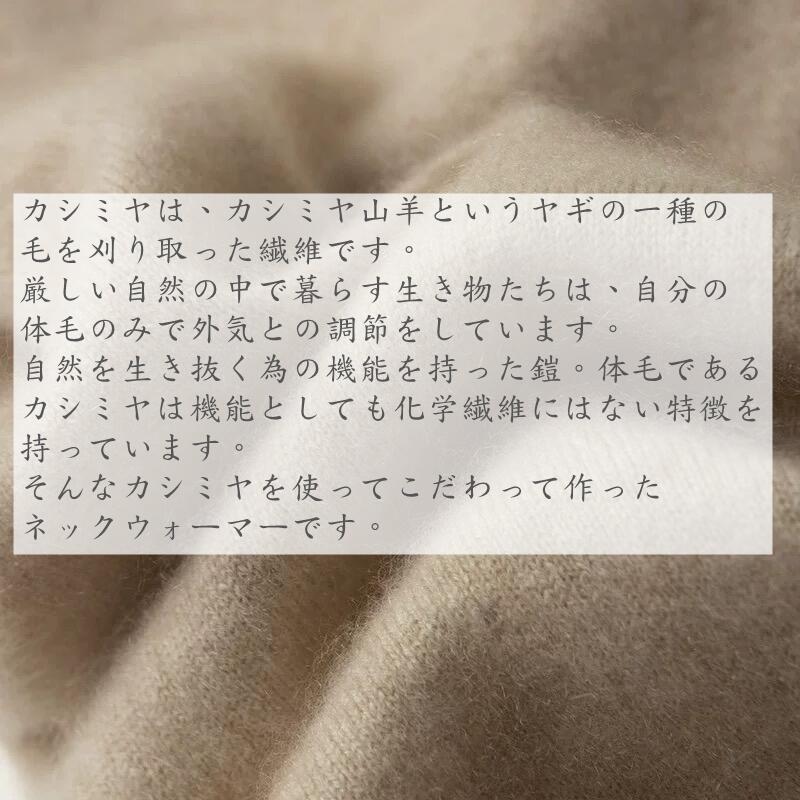 カシミヤは、カシミヤ山羊というヤギの一種の
毛を刈り取った繊維です。
厳しい自然の中で暮らす生き物たちは、自分の
体毛のみで外気との調節をしています。
自然を生き抜く為の機能を持った鎧。体毛である
カシミヤは機能としても化学繊維にはない特徴を
持っています。
そんなカシミヤを使ってこだわって作った
ネックウォーマーです。